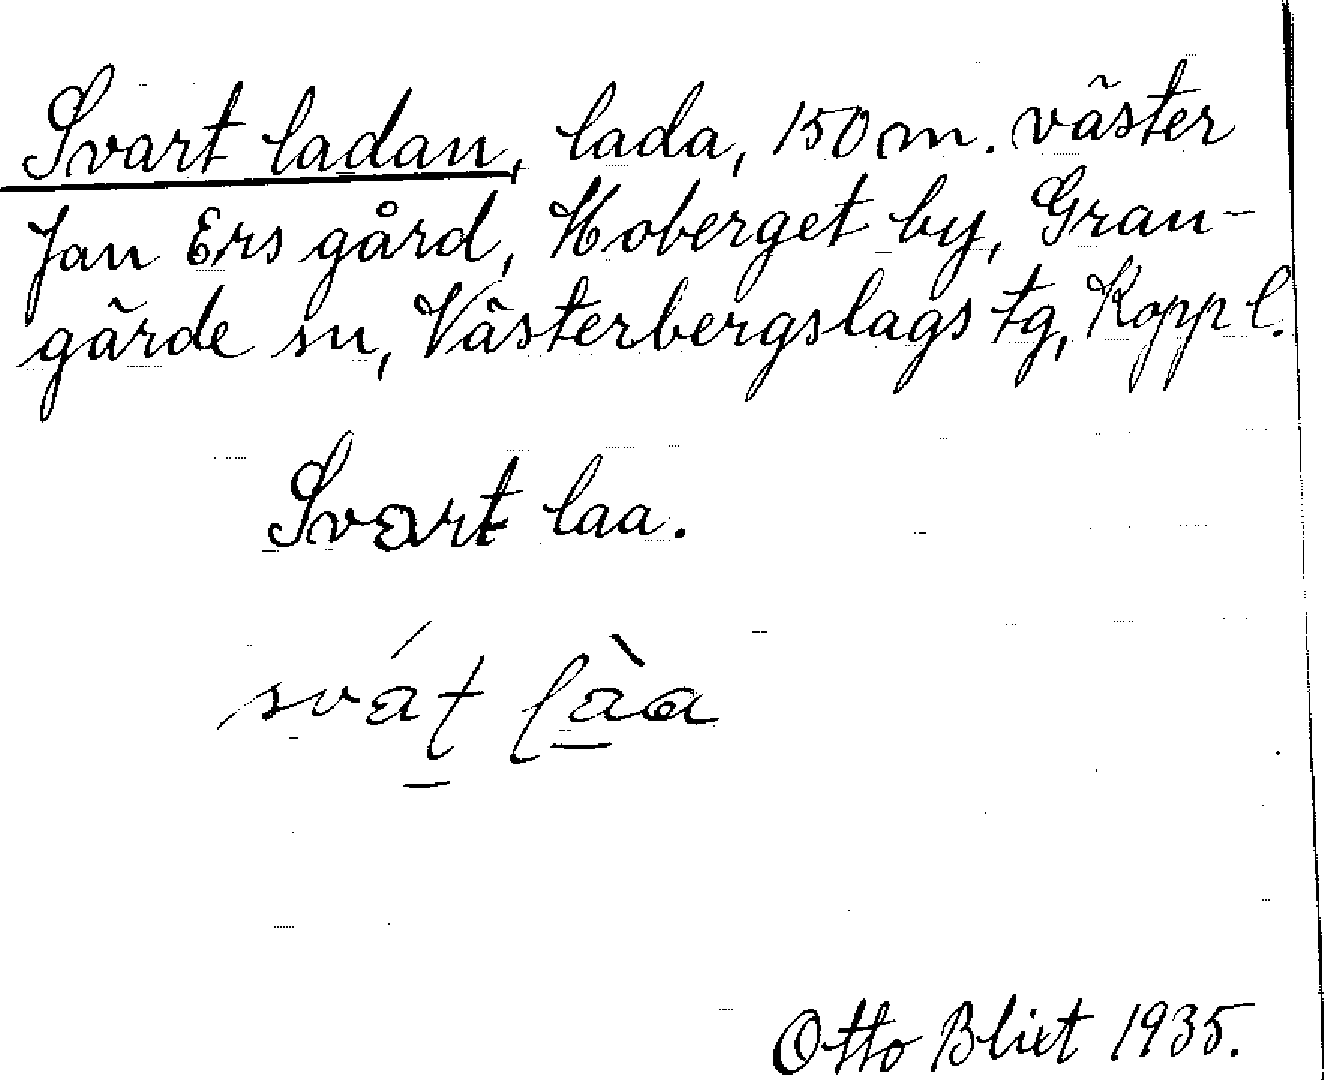 Svart ladan, lada, 150 m. väster
Jan Ers gård, Hoberget by, Gran-
gärde sn, Västerbergslags tg, Kopp l.
Svart laa.
svát làa
Otto Blixt 1935.